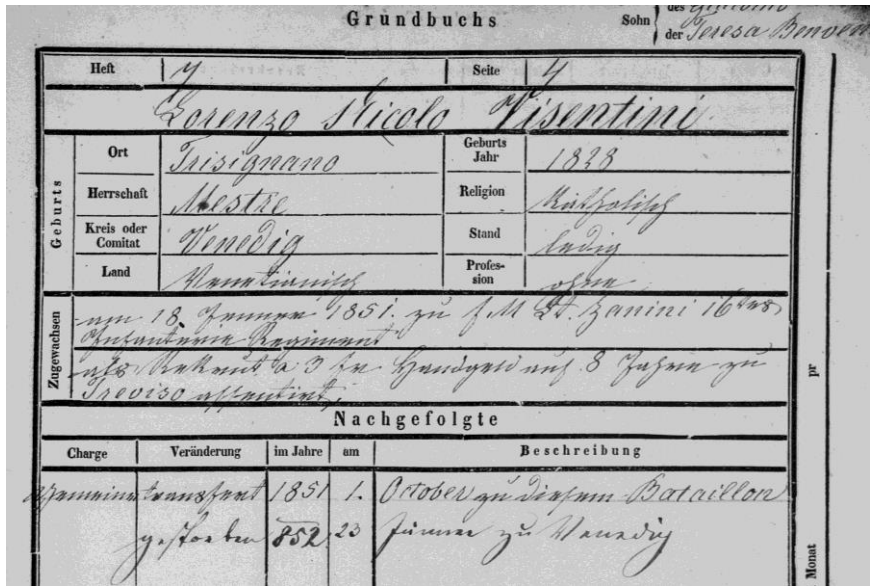 Grundbuchs
Sohn
des
der Teresa Benven
Heft 7 Seite 4
Lorenzo Nicolo Visentini
Geburts
Ort Trisignano Geburts Jahr 1828
Herrschaft Mestre Religion Katholisch
Kreis oder Comitat Venedig Stand ledig
Land Venetianisch Profession ohne
Zugewachsen
am 18. Jenner 1851. zu F.M Lt. Zanini 16tes
Infanterie Regiment
als Rekrut a 3 fr Handgeld auf 8 Jahre zu
Treviso assentirt.
Nachgefolgte
Charge Veränderung im Jahre am Beschreibung
Gemeiner transfert 1851 1. October zu diesem Bataillon
gestorben 852 23 Jänner zu Venedig
pr
Monat